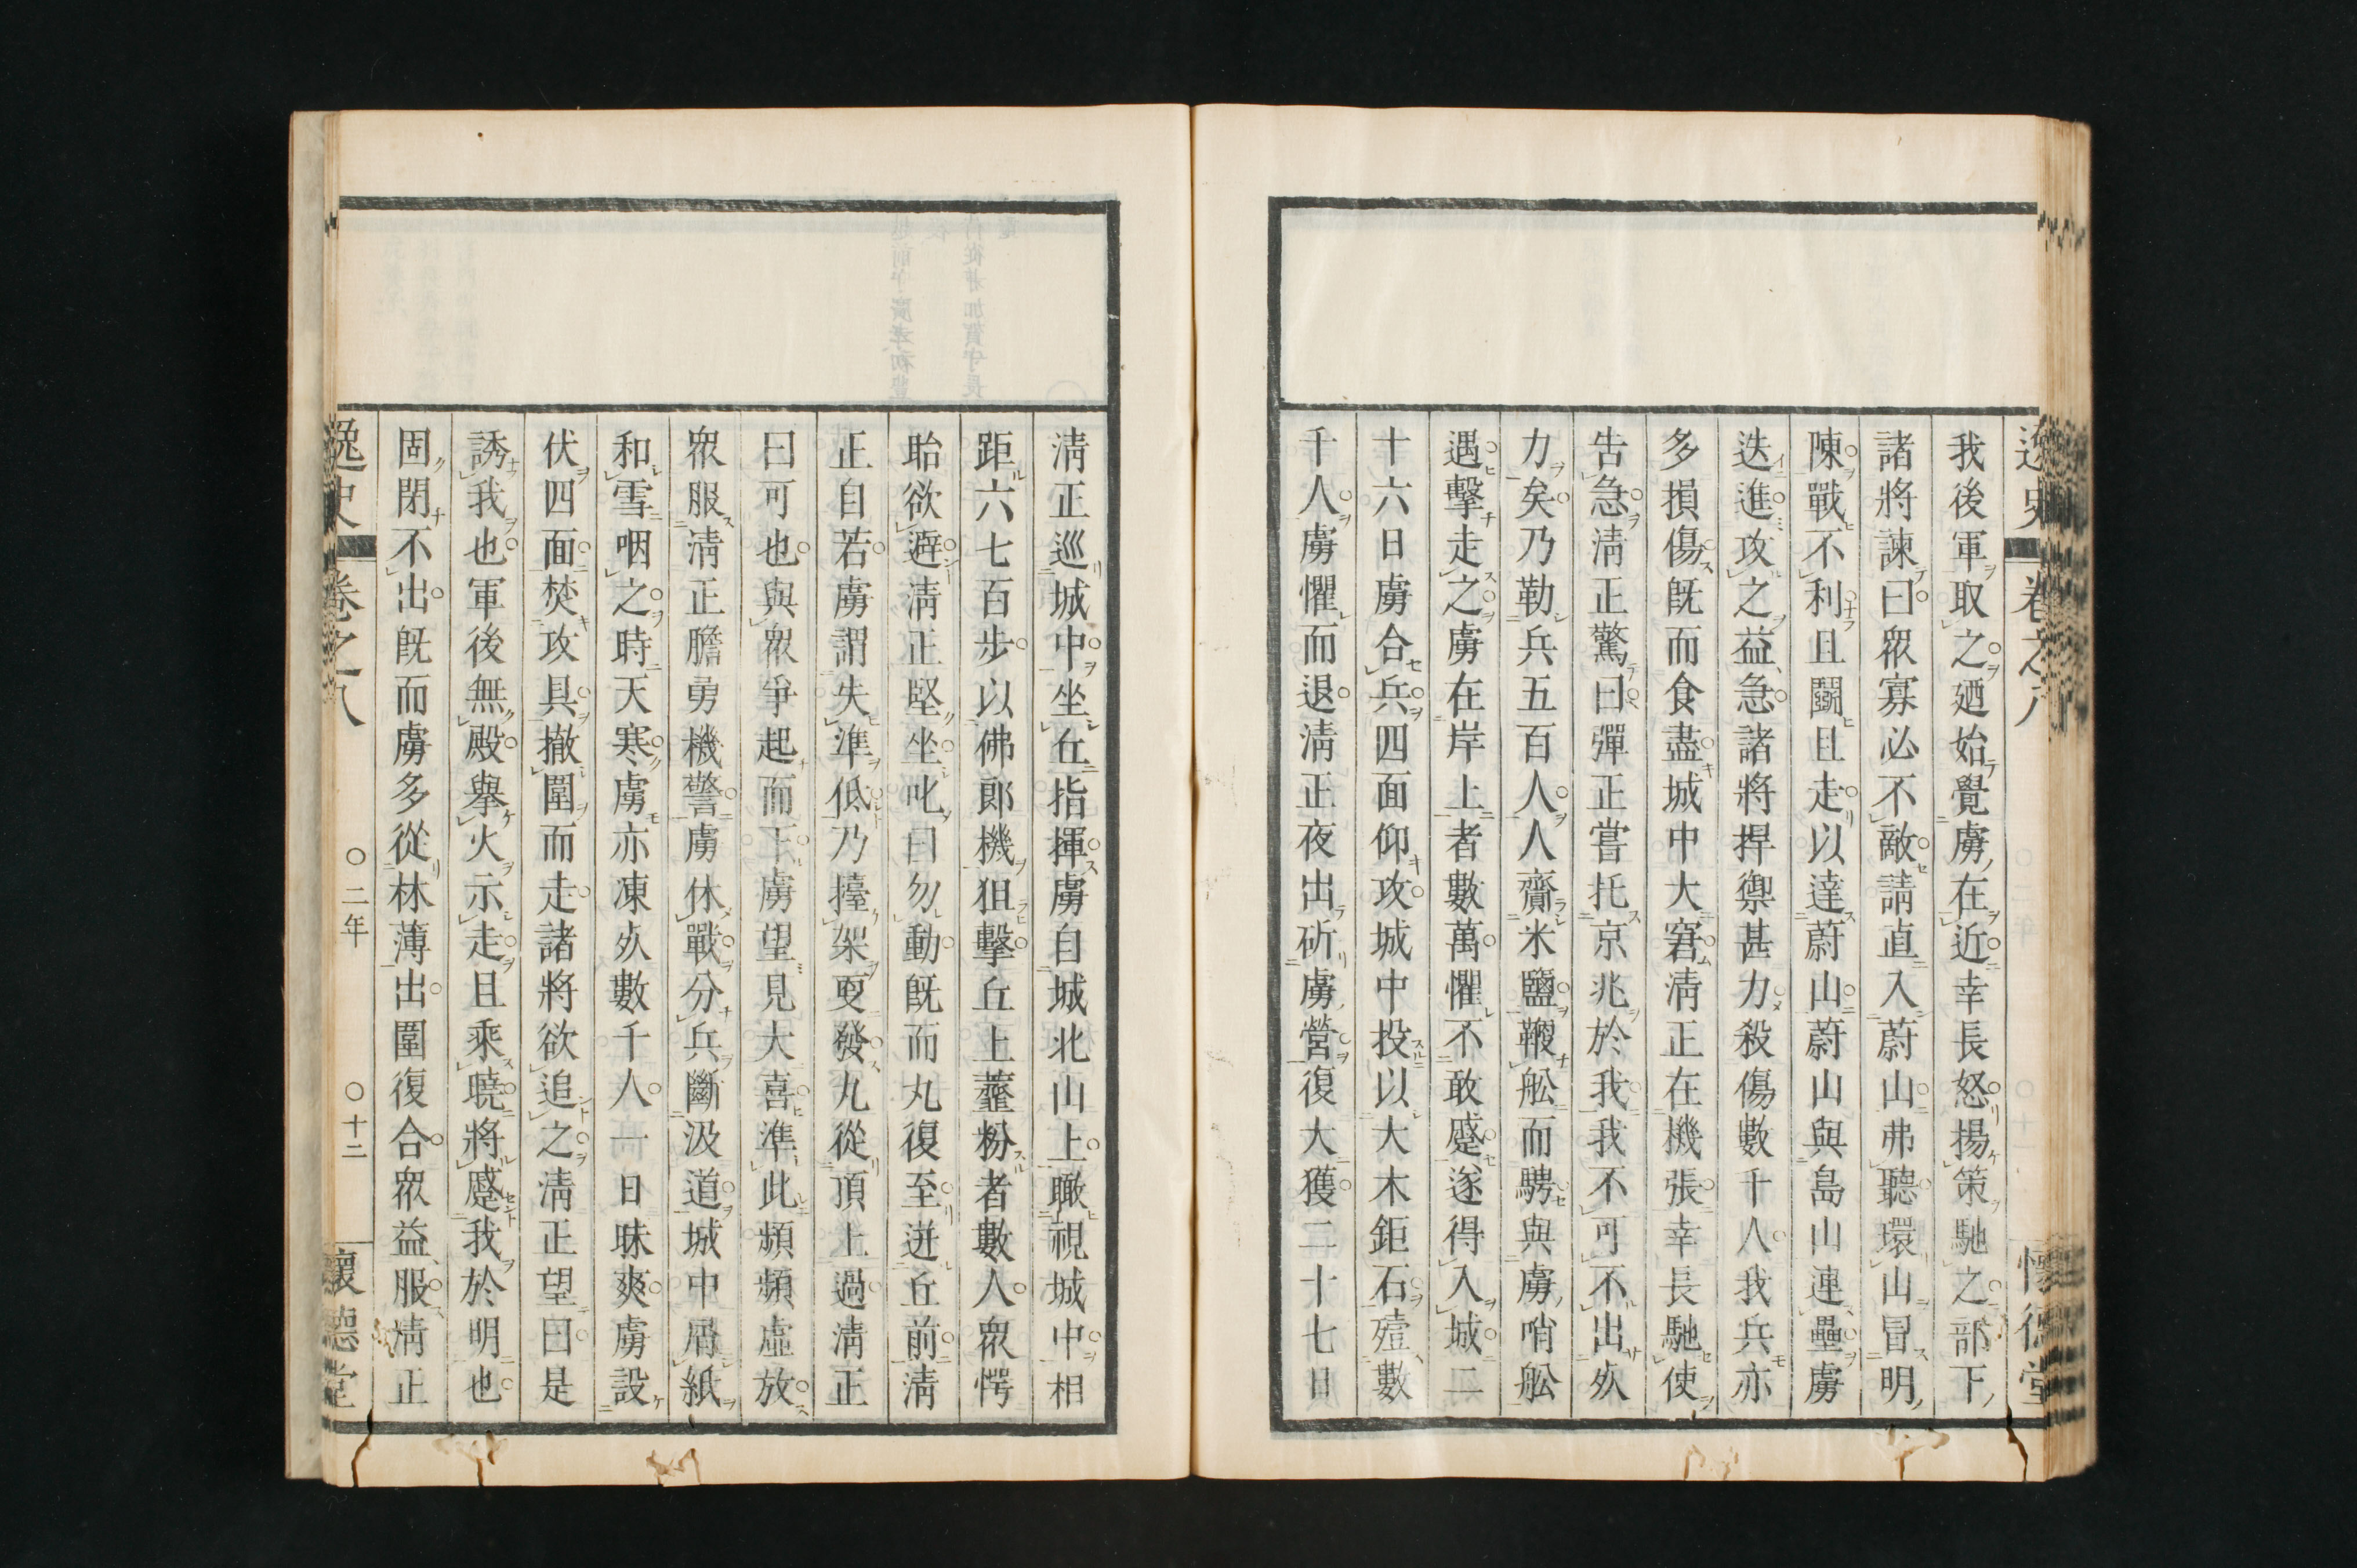 我後軍取之廼始覺虜在近幸長怒揚策馳之部下
諸將諫曰衆寡必不敵請直入蔚山弗聽環山冒明
陳戰不利且鬬且走以達蔚山蔚山與島山連壘虜
迭進攻之益急諸將捍禦甚力殺傷數千人我兵亦
多損傷既而食盡城中大窘淸正在機張幸長馳使
告急淸正驚曰彈正嘗托京兆於我我不可不出死
力矣乃勒兵五百人人齎米鹽鞭舩而騁與虜哨舩
遇擊走之虜在岸上者數萬懼不敢蹙遂得入城二
十六日虜合兵四面仰攻城中投以大木鉅石殪數
千人虜懼而退淸正夜出斫虜營復大獲二十七日
淸正巡城中坐丘指揮虜自城北山上瞰視城中相
距六七百步以佛郎機狙擊丘上虀粉者數人衆愕
眙欲避淸正堅坐叱曰勿動既而丸復至迸丘前淸
正自若虜謂失準低乃擡架更發丸從頂上過淸正
曰可也與衆爭起而下虜望見大喜準此頻頻虛放
衆服淸正膽勇機警虜休戰分兵斷汲道城中屑紙
和雪咽之時天寒虜亦凍死數千人一日昧爽虜設
伏四面焚攻具撤圍而走諸將欲追之淸正望曰是
誘我也軍後無殿擧火示走且乘曉將蹙我於明也
固閉不出既而虜多從林薄出圍復合衆益服淸正
逸史 卷之八 〇二年 〇十二 懷德堂